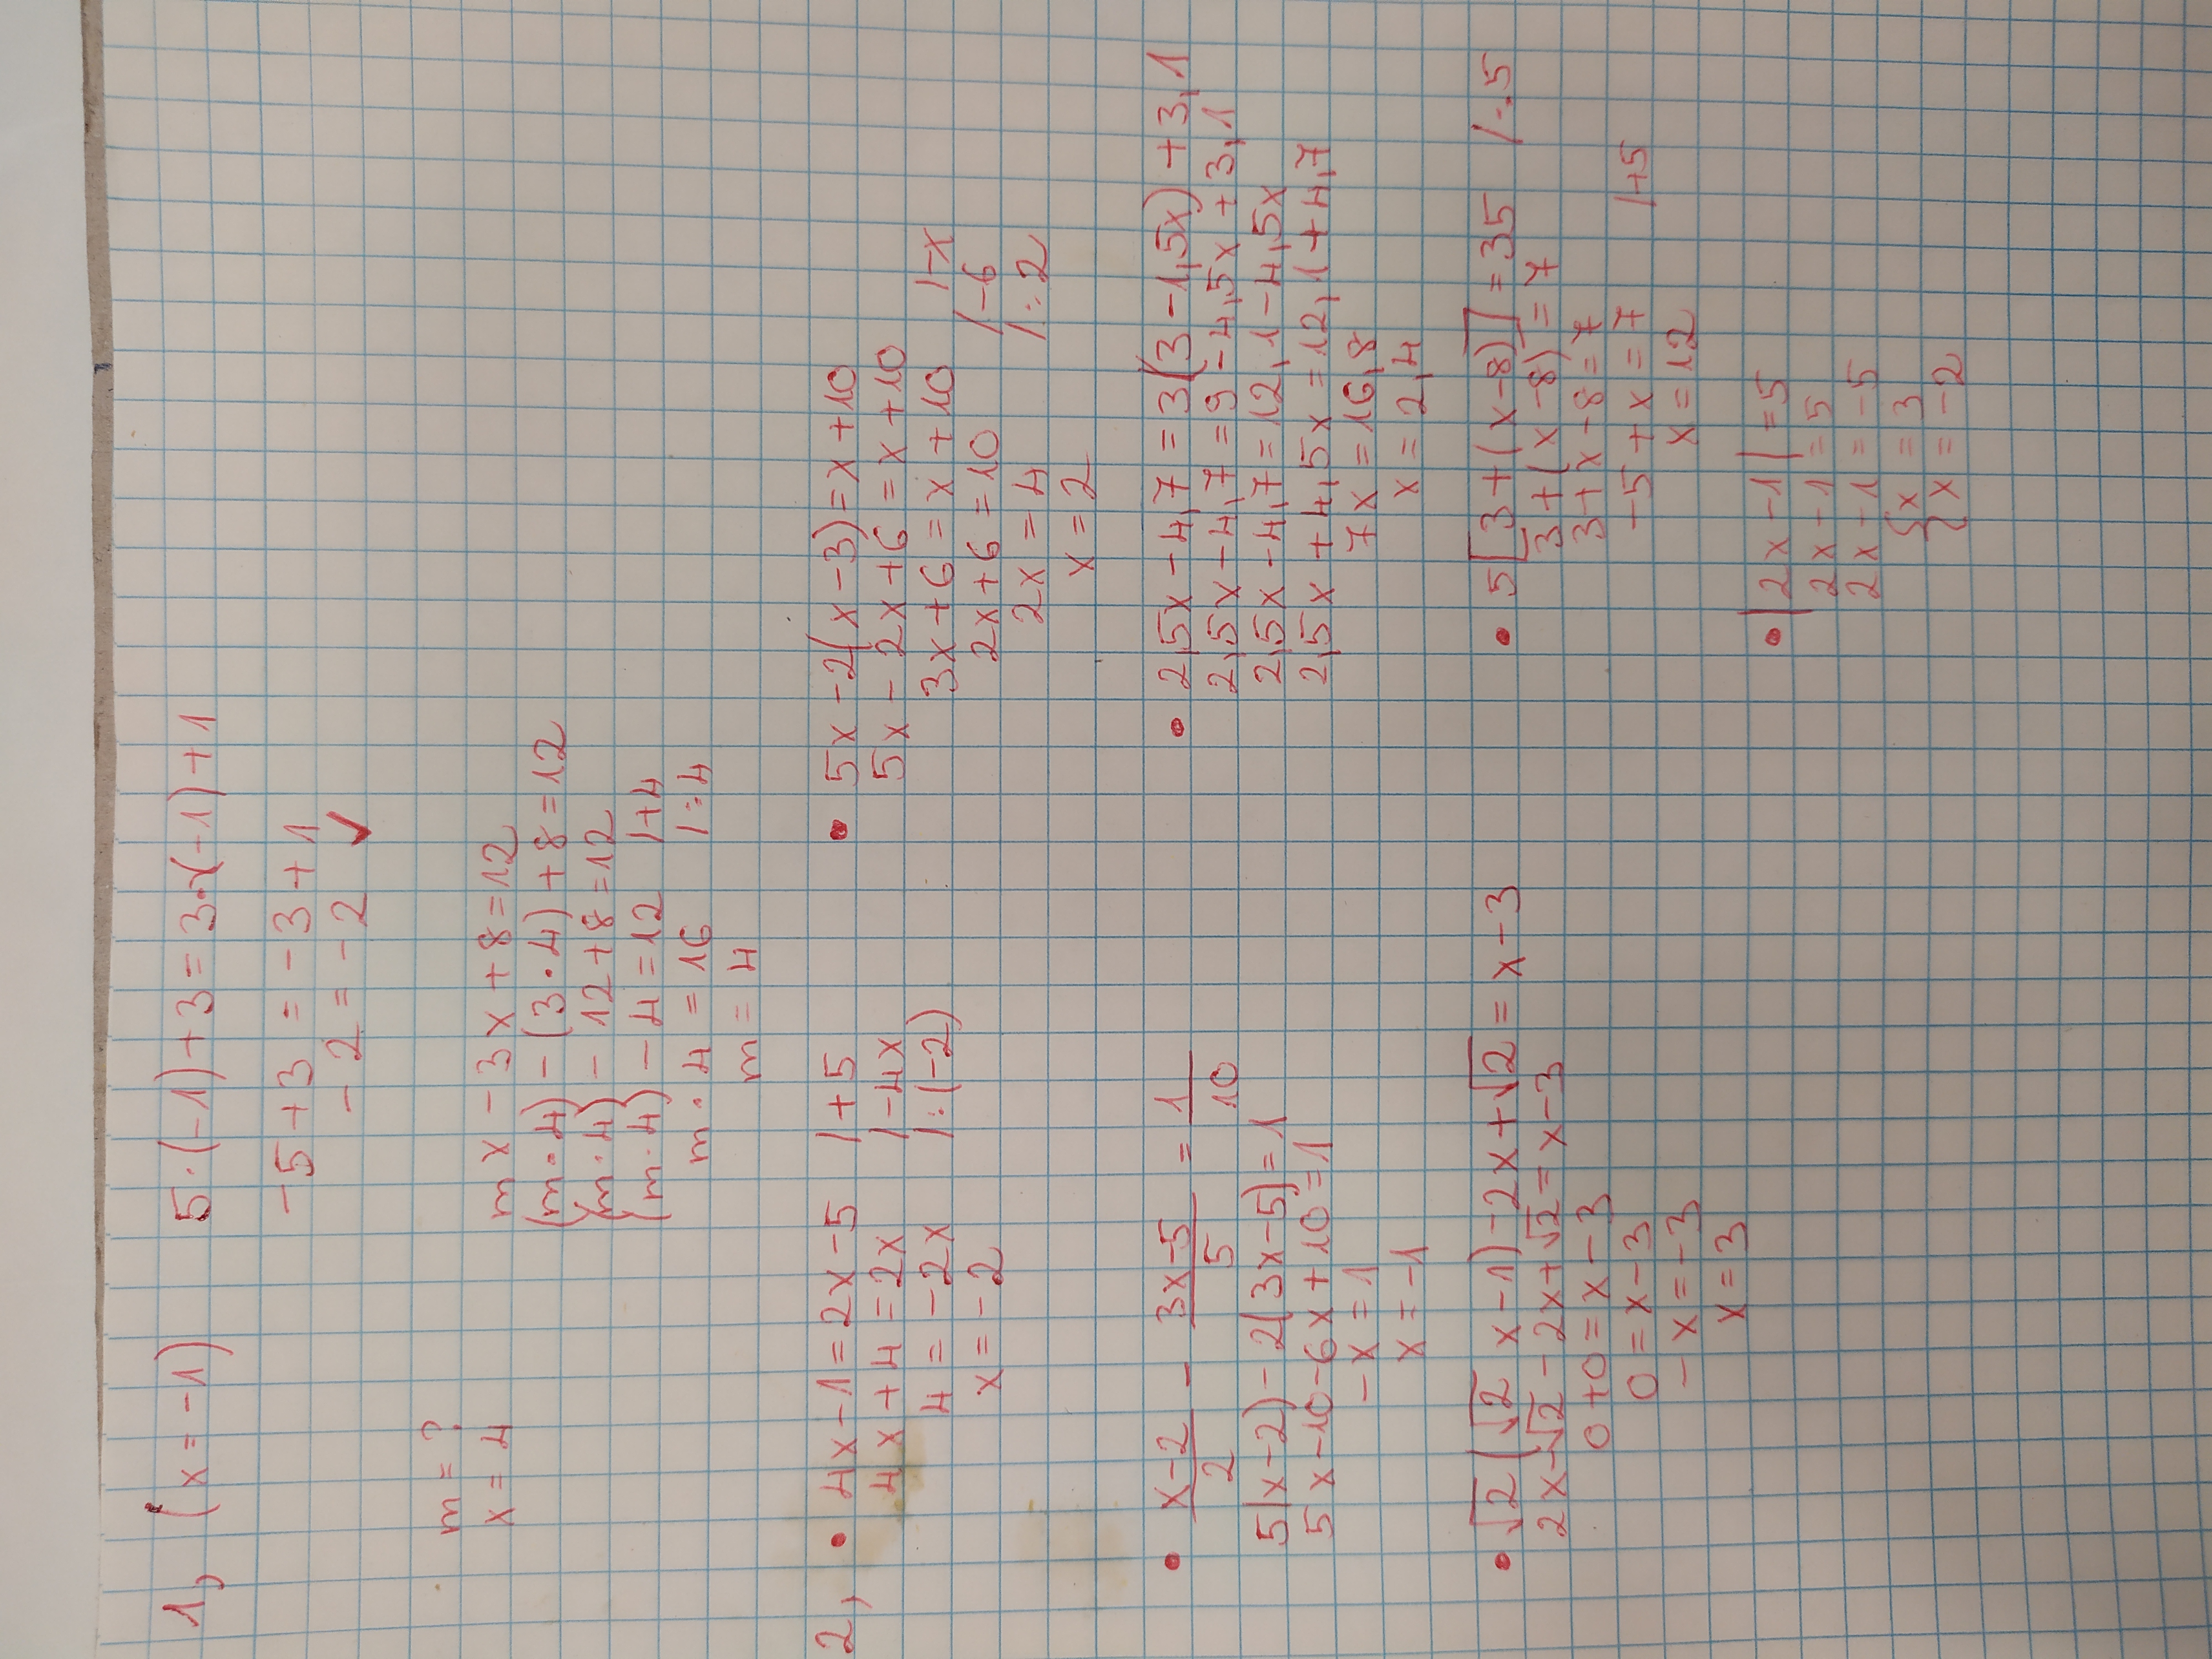 1, (x = -1) 5·(-1)+3 = 3·(-1)+1
-5+3 = -3+1
-2 = -2 ✓
m = ?
x = 4
mx - 3x + 8 = 12
(m·4) - (3·4) + 8 = 12
(m·4) - 12 + 8 = 12
(m·4) - 4 = 12 /+4
m·4 = 16 /:4
m = 4
2, • 4x - 1 = 2x - 5 /+5
4x + 4 = 2x /-4x
4 = -2x /:(-2)
x = -2
• 5x - 2(x - 3) = x + 10
5x - 2x + 6 = x + 10
3x + 6 = x + 10 /-x
2x + 6 = 10 /-6
2x = 4 /:2
x = 2
• x-2/2 - 3x-5/5 = 1/10
5(x-2) - 2(3x-5) = 1
5x - 10 - 6x + 10 = 1
-x = 1
x = -1
• 2,5x - 4,7 = 3(3 - 1,5x) + 3,1
2,5x - 4,7 = 9 - 4,5x + 3,1
2,5x - 4,7 = 12,1 - 4,5x
2,5x + 4,5x = 12,1 + 4,7
7x = 16,8
x = 2,4
• √2(√2 x - 1) - 2x + √2 = x - 3
2x - √2 - 2x + √2 = x - 3
0 + 0 = x - 3
0 = x - 3
-x = -3
x = 3
• 5[3 + (x - 8)] = 35 /:5
3 + (x - 8) = 7
3 + x - 8 = 7
-5 + x = 7 /+5
x = 12
• |2x - 1| = 5
2x - 1 = 5
2x + 1 = -5
{x = 3
{x = -2